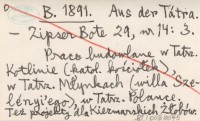 B. 1891. Aus der Tátra.
— Zipser Bote 29, nr 14: 3.
Prace budowlane w Tatrz.
Kotlinie (katol. kościółek),
w Tatrz. Młynkach (willa Sze-
lényi'ego), w Tatrz. Polance.
Też projekty dla Kieżmarskich Żłobów.